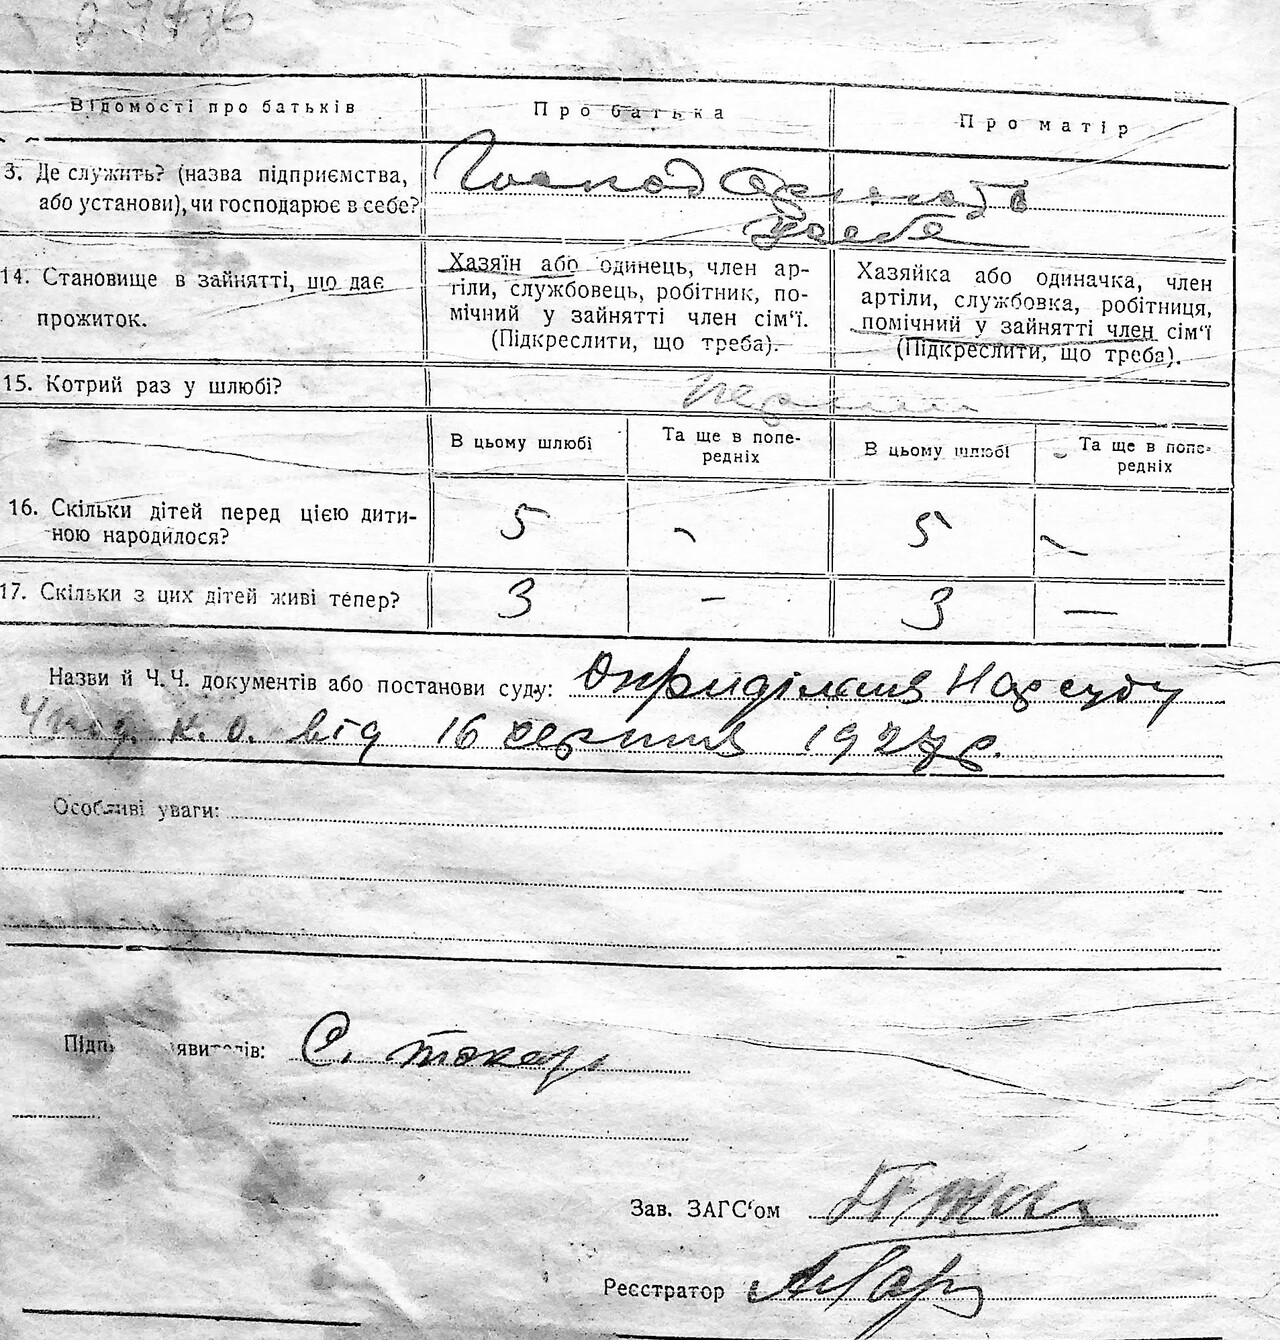 Відомості про батьків
Про батька
Про матір
3. Де служить? (назва підприємства,
або установи), чи господарює в себе?
14. Становище в зайнятті, що дає
прожиток.
Хазяїн або одинець, член ар-
тіли, службовець, робітник, по-
мічний у зайнятті член сім'ї.
(Підкреслити, що треба).
Хазяйка або одиначка, член
артіли, службовка, робітниця,
помічний у зайнятті член сім'ї
(Підкреслити, що треба).
15. Котрий раз у шлюбі?
В цьому шлюбі
Та ще в попе-
редніх
В цьому шлюбі
Та ще в попе-
редніх
16. Скільки дітей перед цією дити-
ною народилося?
5 - 5 -
17. Скільки з цих дітей живі тепер?
3 - 3 -
Назви й Ч.Ч. документів або постанови суду: Оприділення Нарсуду
к. о. від 16 серпня 1927 р.
Особливі уваги:
С. Токар
Зав. ЗАГС'ом
Реєстратор